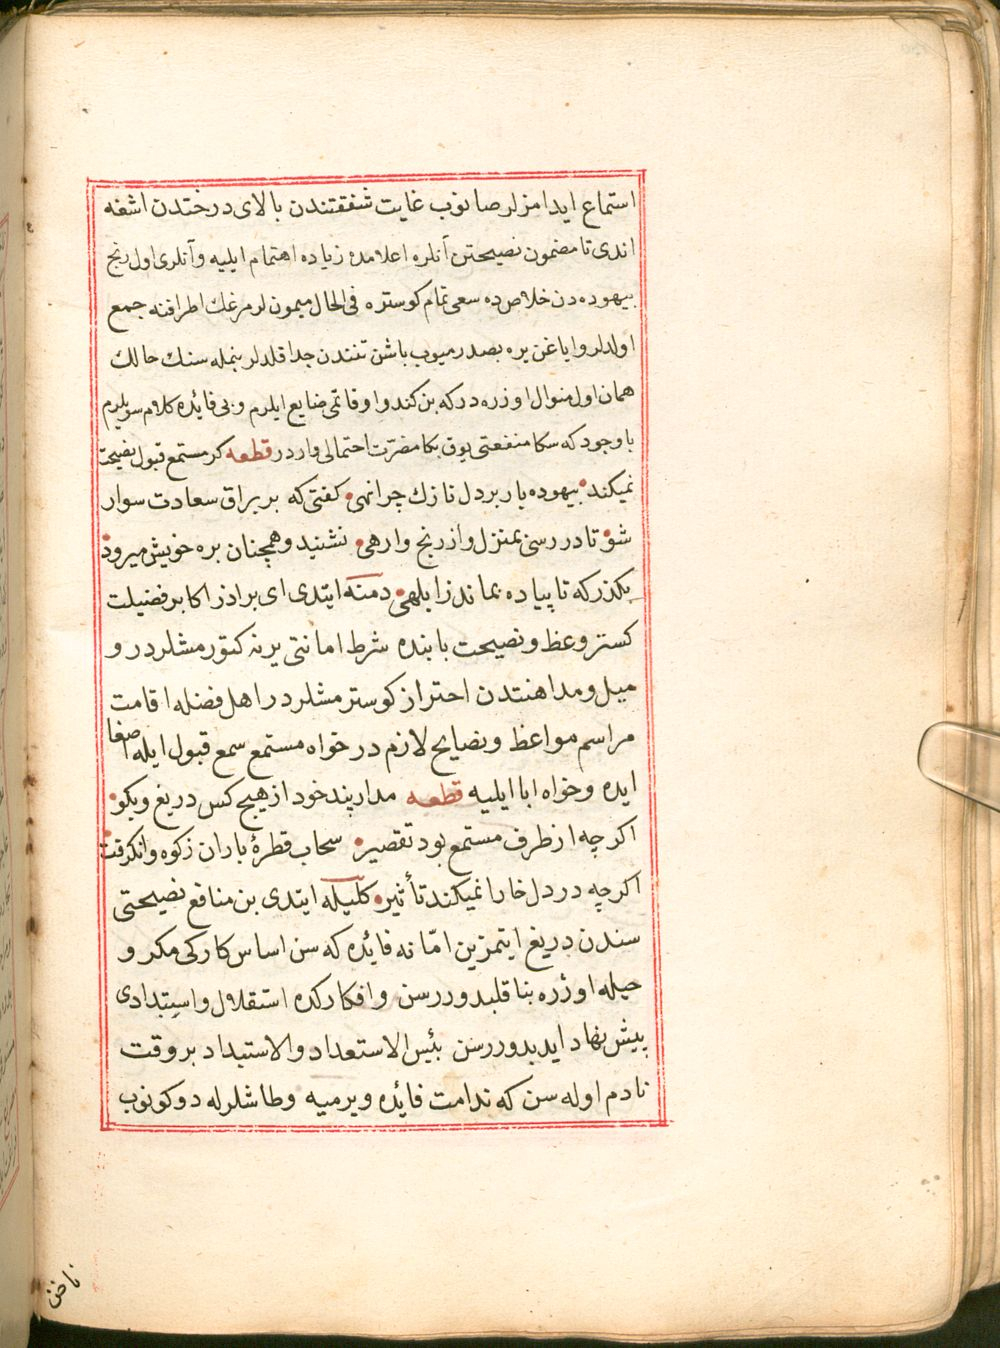 استماع ایدامزلر صانوب غایت شفقتندن بالای درختدن اشغه
اندی تا مضمون نصیحتن آنلره اعلامده زیاده اهتمام ایلیه و آنلری اول رنج
بیهوده دن خلاص ده سعی تمام کوستره فی الحال میمون لر مرغك اطرافنه جمع
اولدلر و ایاغن یره بصدرمیوب باشن تنندن جدا قلدلر بنمله سنك حالك
همان اول منوال اوزره در که بن کندو اوقاتمی ضایع ایلرم و بی فایده کلام سویلرم
با وجود که سکا منفعتی یوق بکا مضرت احتمالی واردر قطعه کر مستمع قبول نصیحت
نمیکند بیهوده بار بر دل نازك چرا نهی کفتی که بر براق سعادت سوار
شو تا در رسی بمنزل و از رنج وارهی نشنید و همچنان بره خویش میرود
بکذر که تا پیاده بماند ز ابلهی دمنه ایتدی ای برادر اکابر فضیلت
کستر وعظ و نصیحت بابنده شرط امانتی یرنه کتورمشلردر و
میل و مداهنتدن احتراز کوسترمشلردر اهل فضله اقامت
مراسم مواعظ و نصایح لازم در خواه مستمع سمع قبول ایله اصغا
ایده و خواه ابا ایلیه قطعه مدار پند خود از هیچ کس دریغ و بکو
اکر چه از طرف مستمع بود تقصیر سحاب قطرهٔ باران ز کوه وانکرفت
اکر چه در دل خارا نمیکند تأثیر کلیله ایتدی بن منافع نصیحتی
سندن دریغ ایتمزین امّا نه فائده که سن اساس کارکی مکر و
حیله اوزره بنا قلبدوررسن و افکارکده استقلال و استبدادی
پیش نهاد ایدبدوررسن بئیس الاستعداد والاستبداد بر وقت
نادم اوله سن که ندامت فائده ویرمیه و طاشلرله دوکونوب